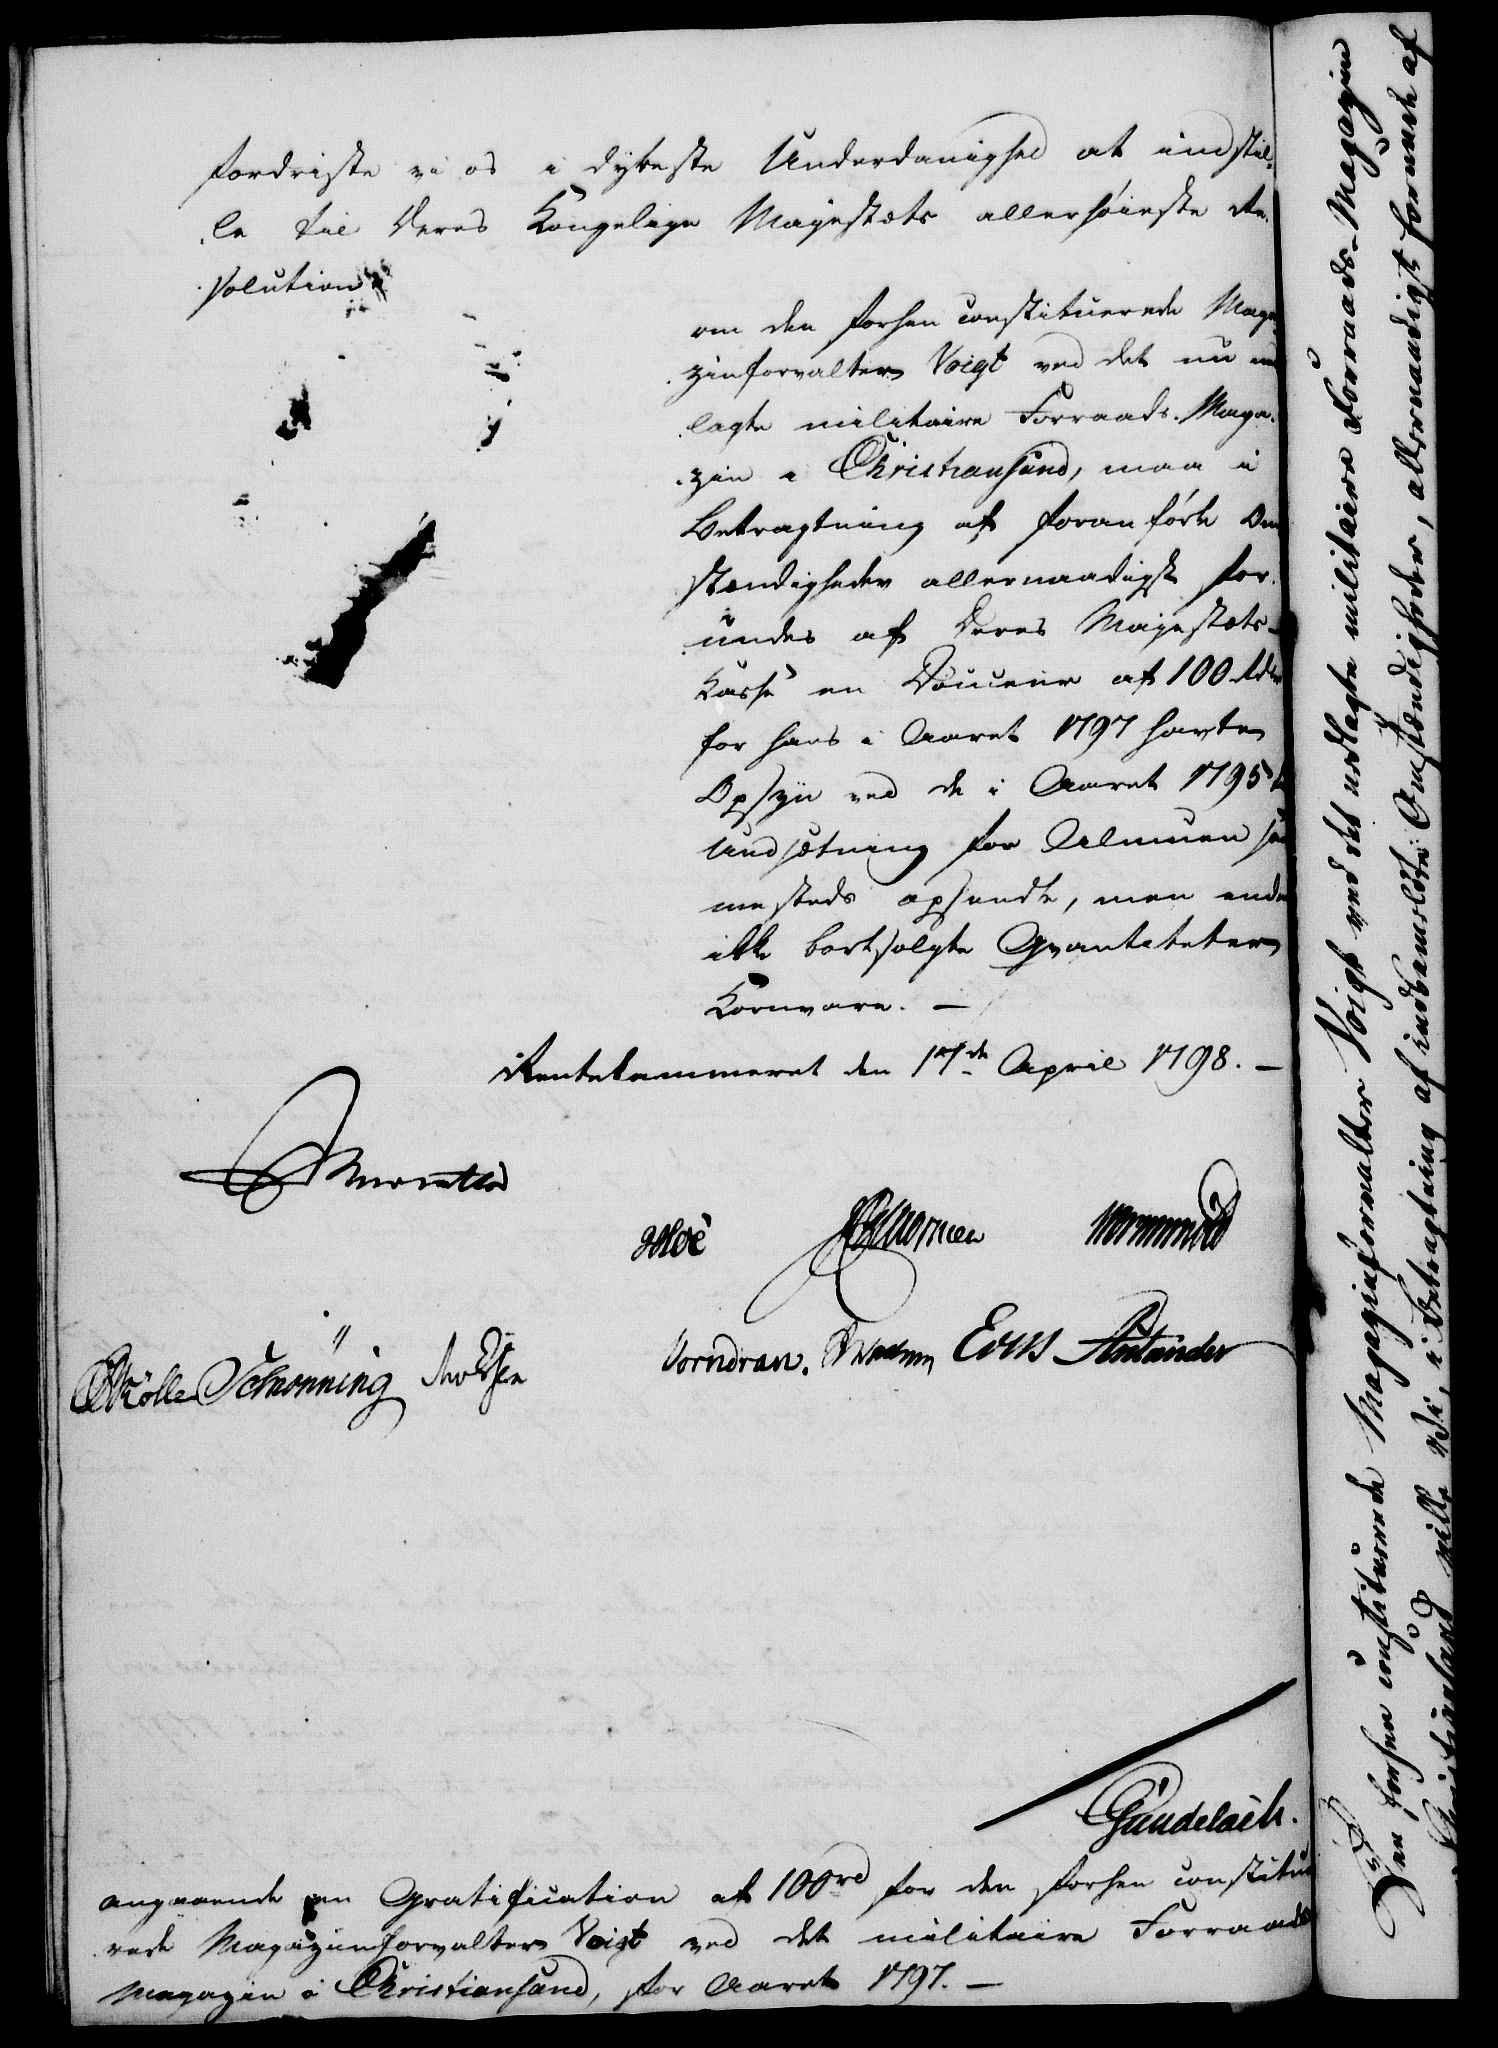 fordriste vi os i dybeste Underdanighed at indstil-
le til Deres Kongelige Majestæts allerhøieste Re-
solution
om den forhen constituerede Maga-
zinforvalter Voigt ved det nu ned
lagte militaire Forraads-Maga-
zin i Christiansand, maa i
Betragtning af foranførte Om
stændigheder allernaadigst for-
undes af Deres Majestæts
Kasse en Douceur af 100 Rdlr
for hans i Aaret 1797 havte
Opsyn ved de i Aaret 1795 til
Undsætning for Almuen sam
mesteds opsendte, men endnu
ikke bortsolgte Qvantiteter
Kornvare. —
Rentekammeret den 17de April 1798. —
Hoë Wormskiold
Schønning Vordran. Eeus Andsander
Gundelach.
angaaende en Gratification af 100rd for den forhen constitue
rede Magazinforvalter Voigt ved det militaire Forraads
Magazin i Christiansand, for Aaret 1797. —
Den forhen constituerede Magazinforvalter Voigt ved det nedlagte militaire Forraads-Magazin
i Christiansand ville Vi, i Betragtning af indbemeldte Omstændigheder, allernaadigst forunde af